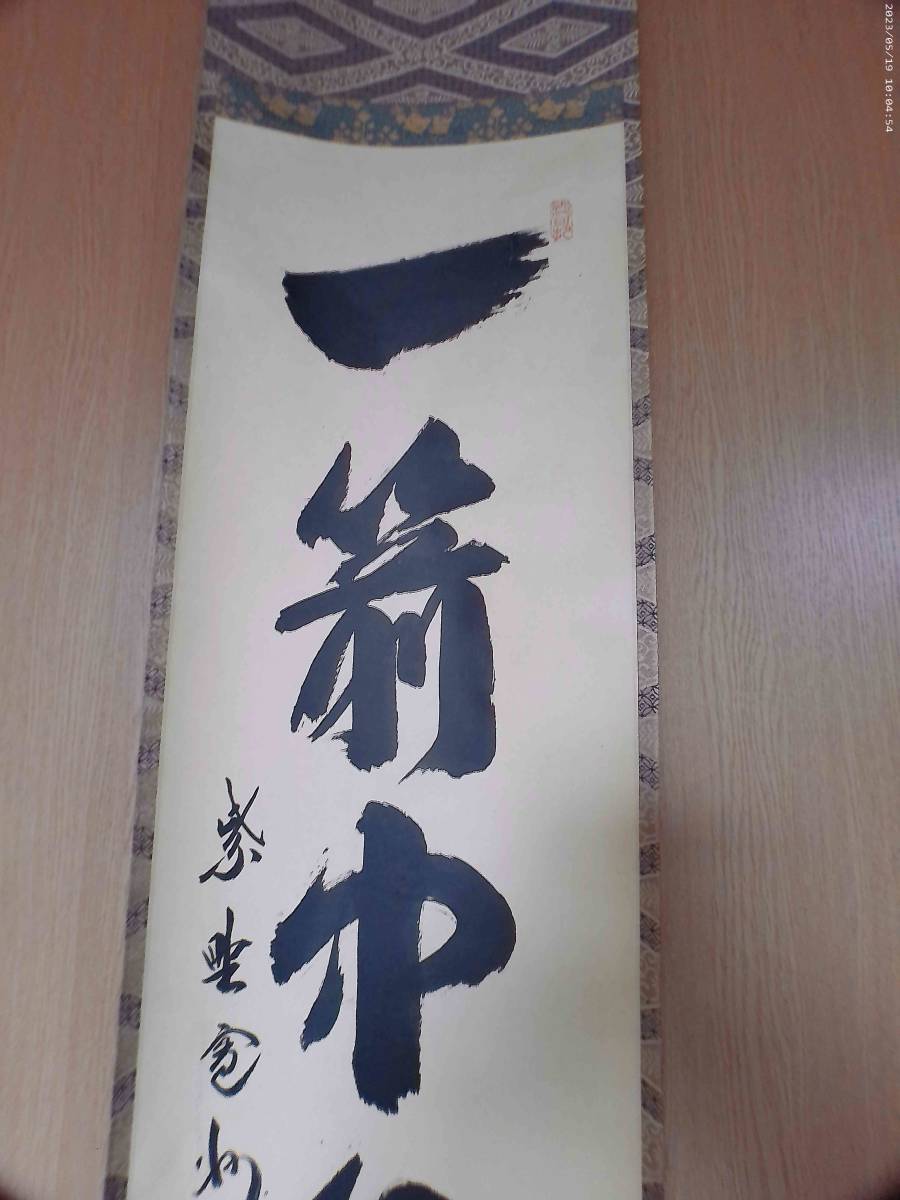 2023/05/19 10:04:54
一箭中
紫野寛州